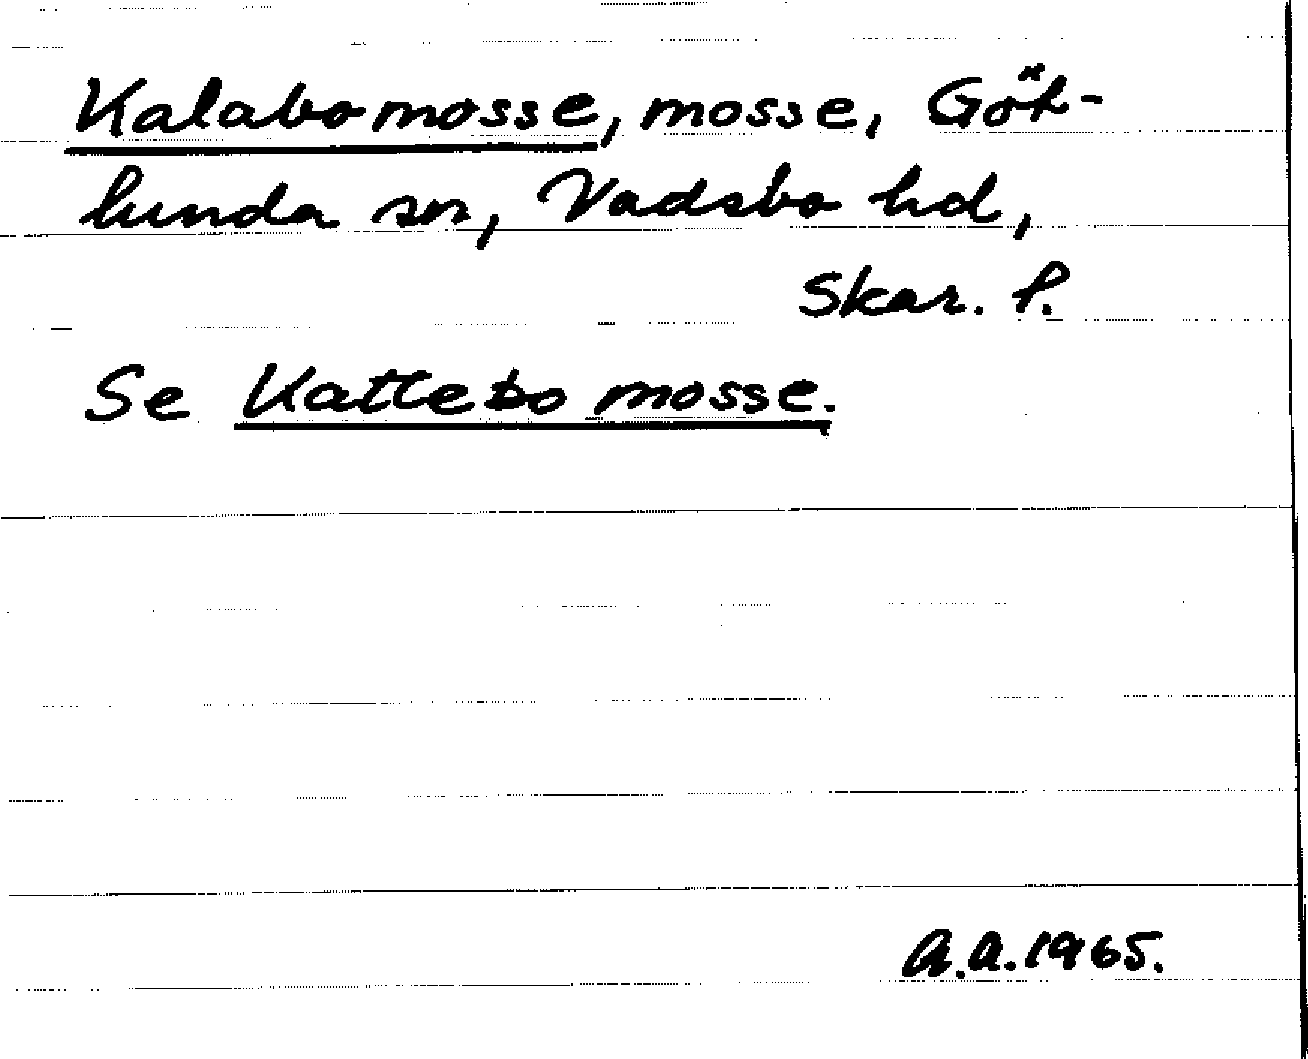 Kalabomosse, mosse, Göt-
lunda sn, Vadsbo hd,
Skar. l.
Se Kattebo mosse.
A.A. 1965.